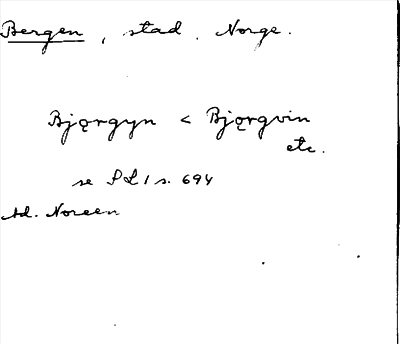 Bergen, stad. Norge.
Bjǫrgyn < Bjǫrgvin
etc.
se SL 1 s. 694
Ad. Noreen